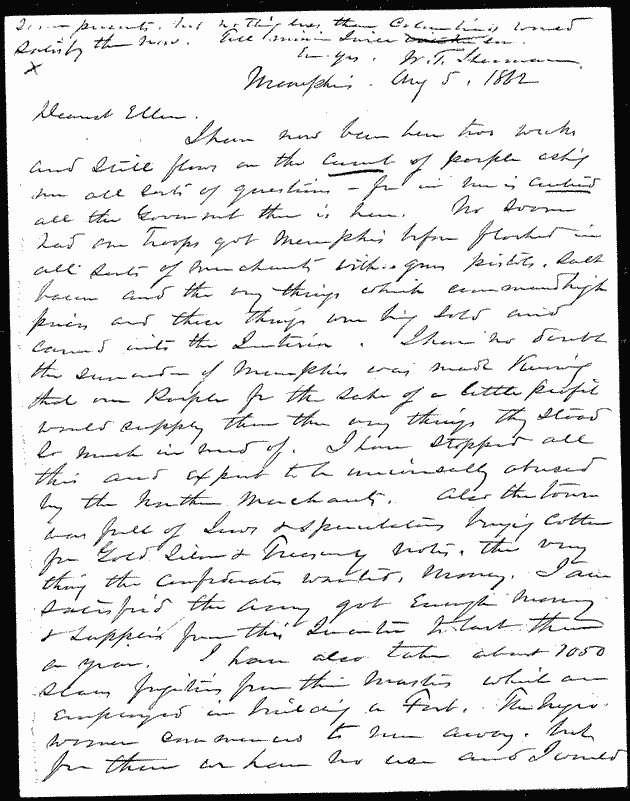 presents, but nothing less than Columbus would
satisfy them now.
Ever Yrs. W. T. Sherman
x
Memphis. Aug 5, 1862
Dearest Ellen.
I have now been here two weeks
and still flows on the current of people asking
me all sorts of questions - for in me is centered
all the Government there is here. No sooner
had our Troops got Memphis before flocked in
all sorts of merchants with guns pistols, salt
bacon and the very things which command high
prices and these things were being sold and
carried into the Interior. I have no doubt
the surrender of Memphis was made knowing
that our People for the sake of a little profit
would supply them the very things they stood
so much in need of. I have stopped all
this and expect to be universally abused
by the Northern Merchants. Also the town
was full of Jews & speculators buying Cotton
for Gold Silver & Treasury notes, the very
thing the Confederates wanted, money. I am
satisfied the army got enough money
& supplies from this Quarter to last them
a year. I have also taken about 1000
slaves fugitives from their masters which are
employed in building a Fort. The Negro
women commenced to run away, but
for them we have no use and I would